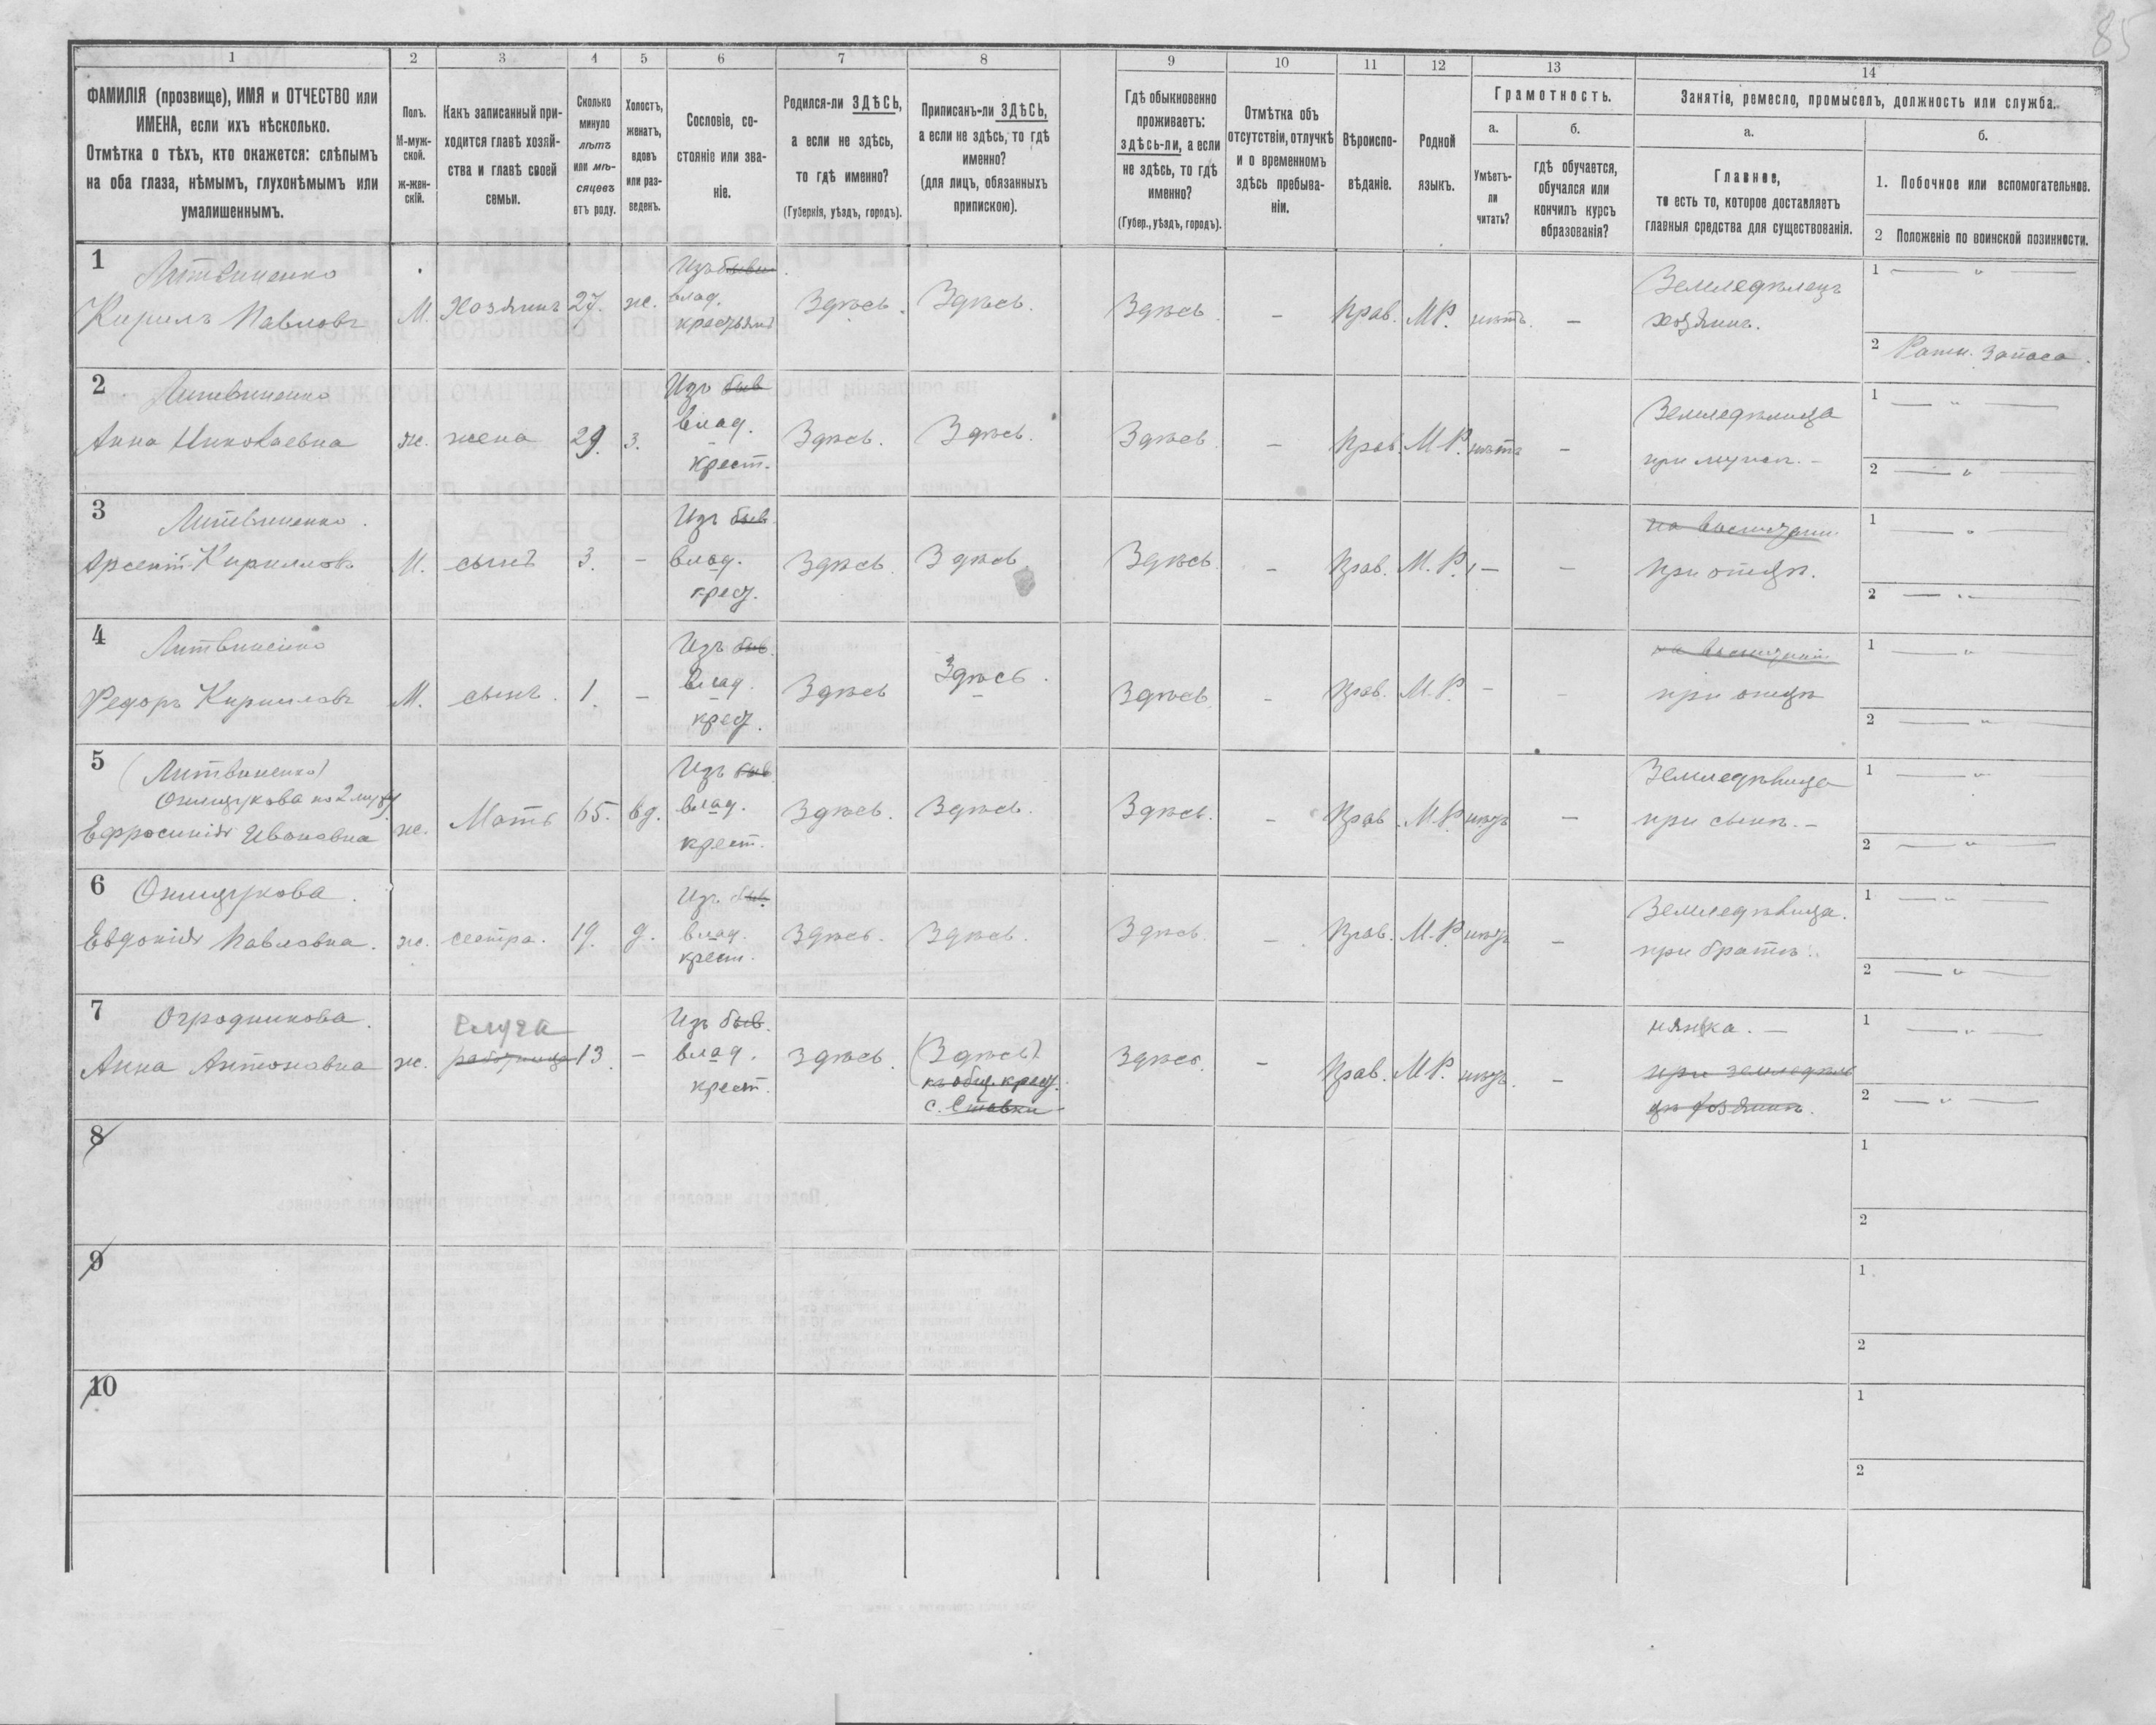 85
1 2 3 4 5 6 7 8 9 10 11 12 13 14
ФАМИЛІЯ (прозвище), ИМЯ и ОТЧЕСТВО или
ИМЕНА, если ихъ нѣсколько.
Отмѣтка о тѣхъ, кто окажется: слѣпымъ
на оба глаза, нѣмымъ, глухонѣмымъ или
умалишеннымъ.
Полъ.
М-муж-
ской.
ж-жен-
скій.
Какъ записанный при-
ходится главѣ хозяй-
ства и главѣ своей
семьи.
Сколько
минуло
лѣтъ
или мѣ-
сяцевъ
отъ роду.
Холостъ,
женатъ,
вдовъ
или раз-
веденъ.
Сословіе, со-
стояніе или зва-
ніе.
Родился-ли ЗДѢСЬ,
а если не здѣсь,
то гдѣ именно?
(Губернія, уѣздъ, городъ).
Приписанъ-ли ЗДѢСЬ,
а если не здѣсь, то гдѣ
именно?
(для лицъ, обязанныхъ
припискою).
Гдѣ обыкновенно
проживаетъ:
здѣсь-ли, а если
не здѣсь, то гдѣ
именно?
(Губер., уѣздъ, городъ).
Отмѣтка объ
отсутствіи, отлучкѣ
и о временномъ
здѣсь пребыва-
ніи.
Вѣроиспо-
вѣданіе.
Родной
языкъ.
Грамотность.
а.
Умѣетъ-
ли
читать?
б.
гдѣ обучается,
обучался или
кончилъ курсъ
образованія?
Занятіе, ремесло, промыселъ, должность или служба.
а.
Главное,
то есть то, которое доставляетъ
главныя средства для существованія.
б.
1. Побочное или вспомогательное.
2 Положеніе по воинской повинности.
1 Литвиненко
Кирилъ Павловъ
М. Хозяинъ 27. ж.
Изъ бывш.
влад.
крестьянъ
Здѣсь. Здѣсь. Здѣсь. – Прав. М Р. нѣтъ. –
Земледѣлецъ
хозяинъ.
1 — " —
2 Ратн. запаса.
2 Литвиненко
Анна Николаевна
ж. жена 29. з.
Изъ быв
влад.
крест.
Здѣсь. Здѣсь. Здѣсь. – Прав. М Р. нѣтъ –
Земледѣлица
при мужѣ. –
1 — " —
2 — " —
3 Литвиненко.
Арсентій Кириловъ
М. сынъ 3. –
Изъ быв
влад.
крест.
Здѣсь. Здѣсь Здѣсь. – Прав. М. Р. – –
при отцѣ.
1 — " —
2 — " —
4 Литвиненко
Федоръ Кириловъ
М. сынъ. 1. –
Изъ быв.
влад.
крест.
Здѣсь Здѣсь. Здѣсь. – Прав. М. Р. – –
при отцѣ
1 — " —
2 — " —
5 (Литвиненко)
Онищукова по 2 мужу
Ефросинія Ивановна
ж. Мать 65. вд.
Изъ быв
влад.
крест.
Здѣсь. Здѣсь. Здѣсь. – Прав. М Р. нѣтъ –
Земледѣлица
при сынѣ. –
1 — " —
2 — " —
6 Онищукова.
Евдокія Павловна.
ж. сестра. 19. д.
Изъ быв.
влад.
крест.
Здѣсь. Здѣсь. Здѣсь. – Прав. М. Р. нѣтъ –
Земледѣлица.
при братѣ.
1 — " —
2 — " —
7 Огродникова.
Анна Антоновна
ж. работница 13. –
Изъ быв.
влад.
крест.
Здѣсь. (Здѣсь)
къ общ. крест.
с. Ставки
Здѣсь. – Прав. М Р. нѣтъ. –
нянька. –
при земледѣль
цѣ хозяинѣ.
1 — " —
2 — " —
8
1
2
9
1
2
10
1
2